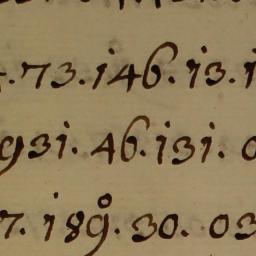 73. 146. 13.
931. 46. 131. 0
7. 189. 30. 03